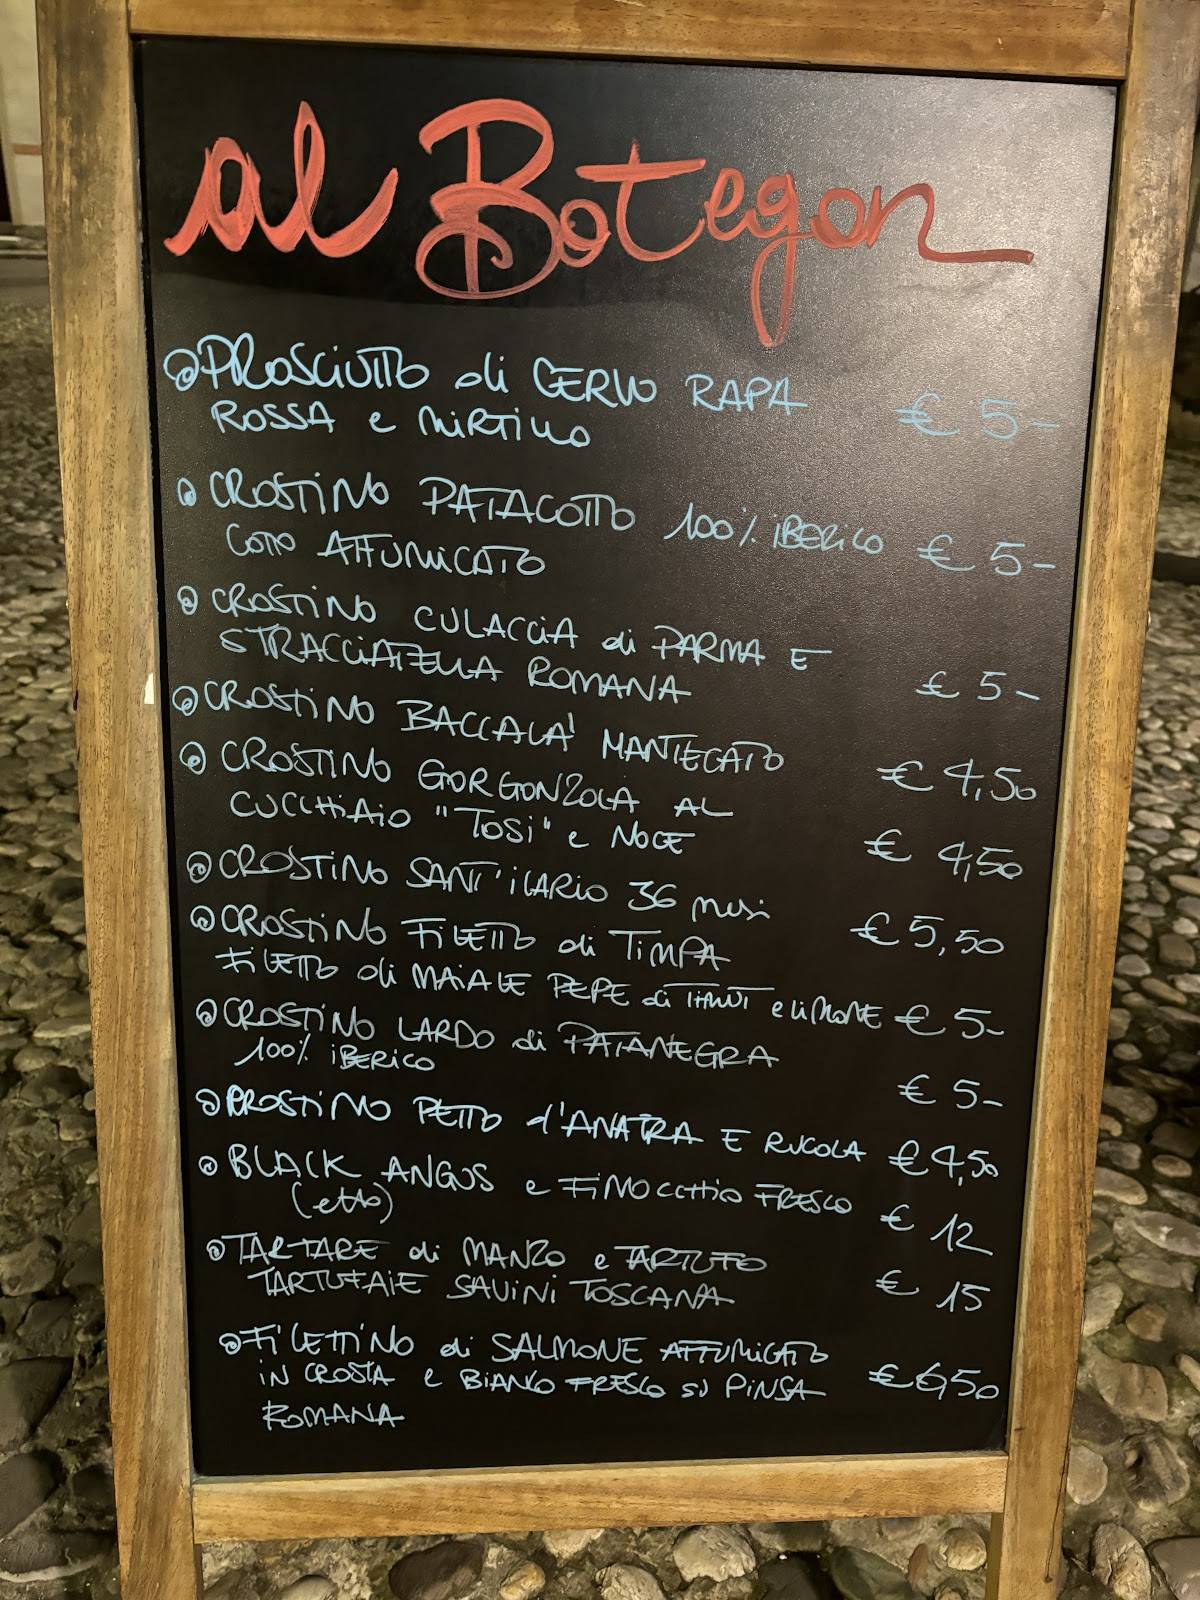 al Botegon
PROSCIUTTO di CERVO RAPA € 5-
ROSSA e MIRTILLO
CROSTINO PATACOTTO 100% iBERICO € 5-
COTTO AFFUMICATO
CROSTINO CULACCIA di PARMA E
STRACCIATELLA ROMANA € 5-
CROSTINO BACCALA' MANTECATO € 4,50
CROSTINO GORGONZOLA AL
CUCCHIAIO "TOSI" e NOCE € 4,50
CROSTINO SANT'ILARIO 36 mesi € 5,50
CROSTINO FILETTO di TIMPA
FILETTO di MAIALE PEPE di e LIMONE € 5-
CROSTINO LARDO di PATANEGRA
100% iBERICO € 5-
CROSTINO PETTO d'ANATRA E RUCOLA € 4,50
BLACK ANGUS e FINOCCHIO FRESCO € 12
(etto)
TARTARE di MANZO e TARTUFO € 15
TARTUFAIE SAVINI TOSCANA
FILETTINO di SALMONE AFFUMICATO
IN CROSTA e BIANCO FRESCO SU PINSA € 6,50
ROMANA